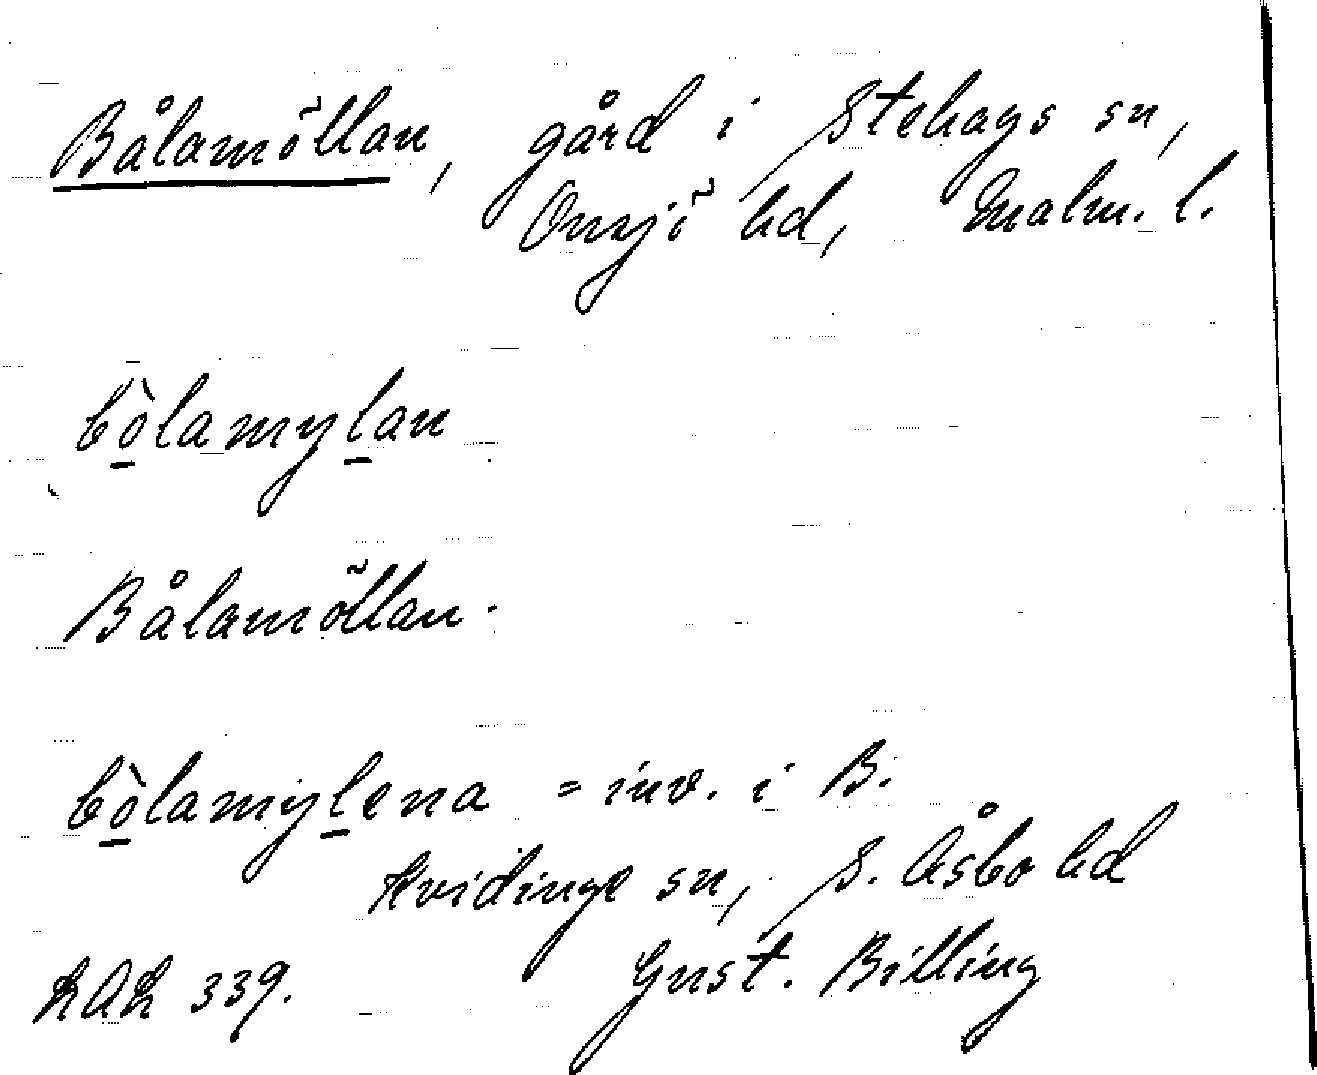 Bålamöllan, gård i Stehags sn,
Onsjö hd, Malm. l.
bò̲lamyl̲an
Bålamöllan.
bò̲lamyl̲ena = inv. i B.
Kvidinge sn, S. Åsbo hd
LAL 339. Gust. Billing